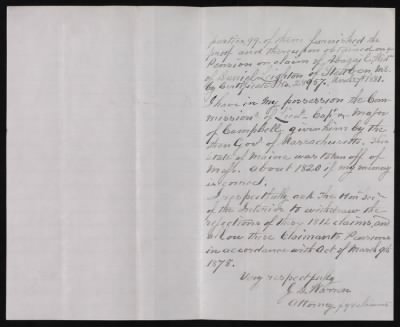 parties 99. of them furnished the
proof and thereupon obtained one
Pension on claim of Abagail
of Daniel Leighton of Steuben, Me.
by Certificate No. 28957.
I have in my possession the Com-
missions of Lieut - Capt & Major
of Campbell, given him by the
then Gov. of Massachusetts. The
State of Maine was taken off of
Mass. about 1820 if my memory
is correct.
I respectfully ask The Hon Secy
of the Interior to withdraw the
rejections of these 1812 claims, and
allow these Claimants Pensions
in accordance with Act of March 9th
1878.
Very respectfully
J. S. Warren
Attorney for